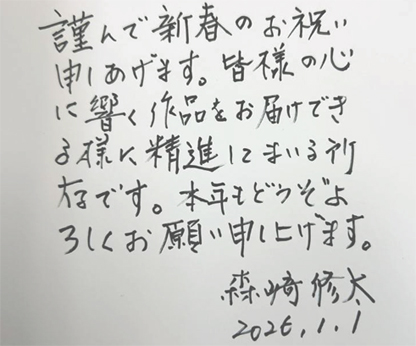 謹んで新春のお祝い
申しあげます。皆様の心
に響く作品をお届けでき
る様に精進してまいる所
存です。本年もどうぞよ
ろしくお願い申し上げます。
森﨑修太
2026.1.1